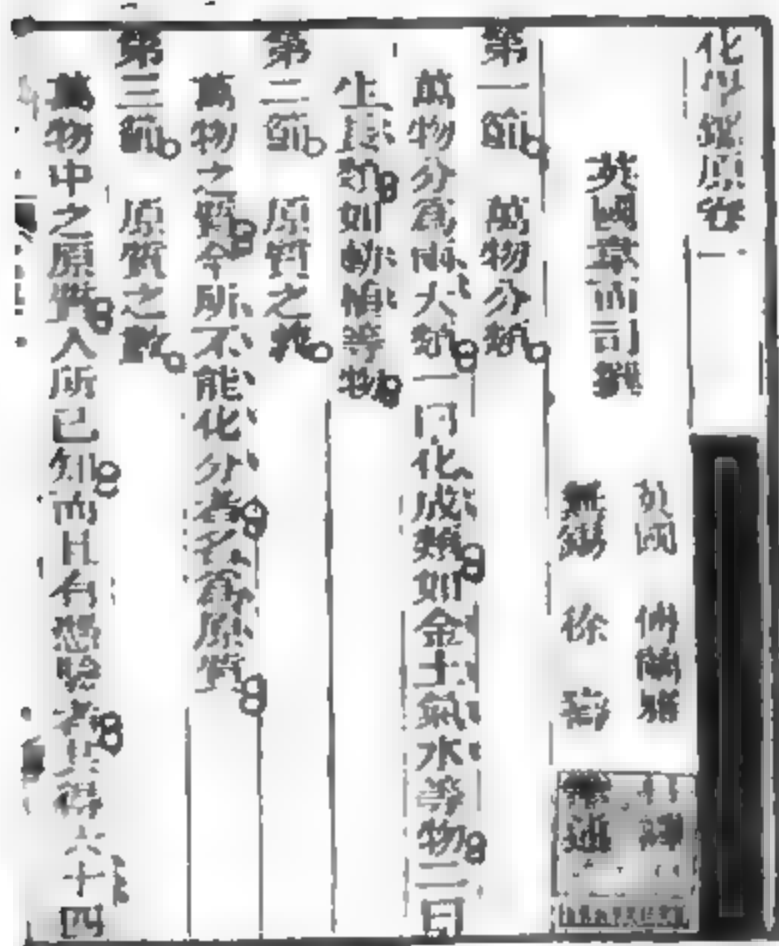 化學鑑原卷一
英國韋而司撰
英國 傅蘭雅 口譯
無錫 徐壽 筆述
第一節 萬物分類
萬物分爲兩大類一曰化成類如金土氣水等物二曰
生長類如動植等物
第二節 原質之義
萬物之質今所不能化分者名爲原質
第三節 原質之數
萬物中之原質人所已知而且有憑驗者共得六十四